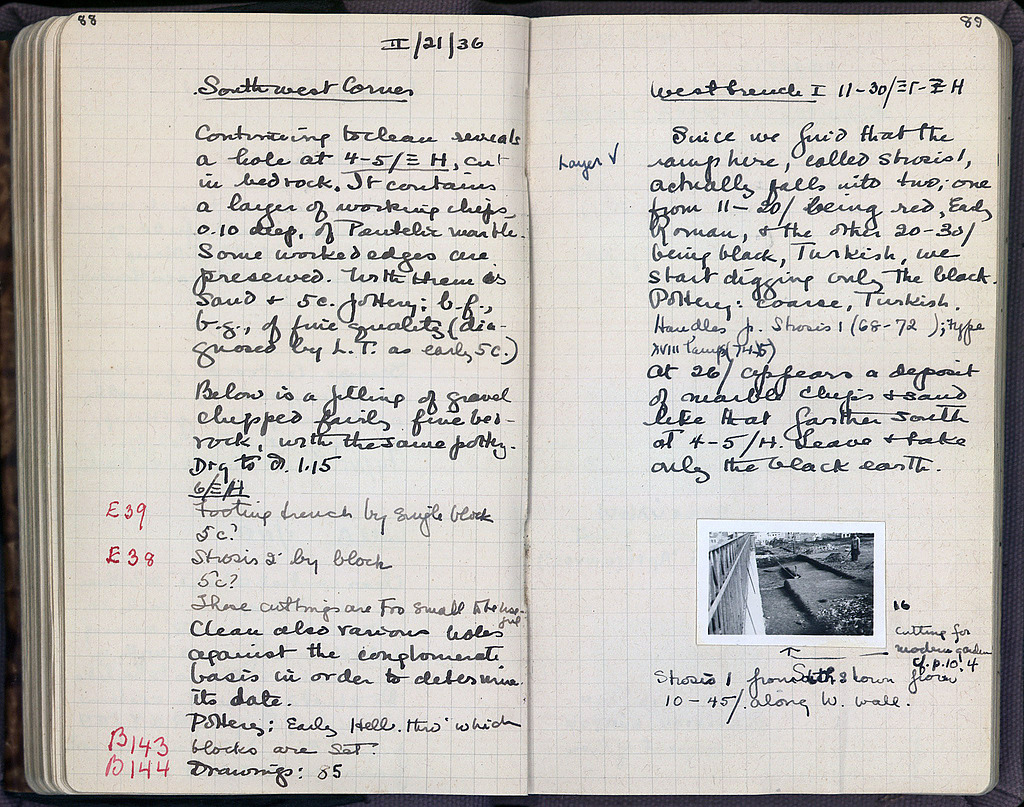 88
II/21/36
Southwest Corner
Continuing to clean reveals
a hole at 4-5/Ξ H, cut
in bedrock. It contains
a layer of working chips,
0.10 deep, of Pentelic marble.
Some worked edges are
preserved. With them is
sand + 5c. pottery: b.f.,
b.g., of fine quality (dia-
gnosed by L.T. as early 5c.)
Below is a filling of gravel
chipped fairly fine bed-
rock, with the same pottery.
Dry to d. 1.15
6/Ξ/H
E39
Footing trench by single block
5c?
E38
Strosis 2 by block
5c?
These cuttings are too small to be
Clean also various holes
against the conglomerate
basis in order to determine
its date.
Pottery: Early Hell. thro' which
B143
blocks are set.
B144
Drawings: 85
89
West trench I 11-30/ΞΓ-Ζ H
Layer V
Since we find that the
ramp here, called strosis 1,
actually falls into two; one
from 11-20/ being red, Early
Roman, + the other 20-30/
being black, Turkish, we
start digging only the black.
Pottery: coarse, Turkish.
Handles f. Strosis 1 (68-72); type
XVIII lamp (745)
At 26/ appears a deposit
of marble chips + sand
like that farther south
at 4-5/H. Leave + take
only the black earth.
16
cutting for
modern garden
cf. p. 10.4
Strosis 1 from South shown
10-45/ along W. wall.